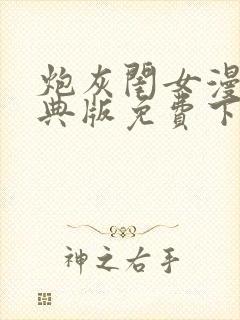 炮灰闺女漫
典版免费下
神之右手